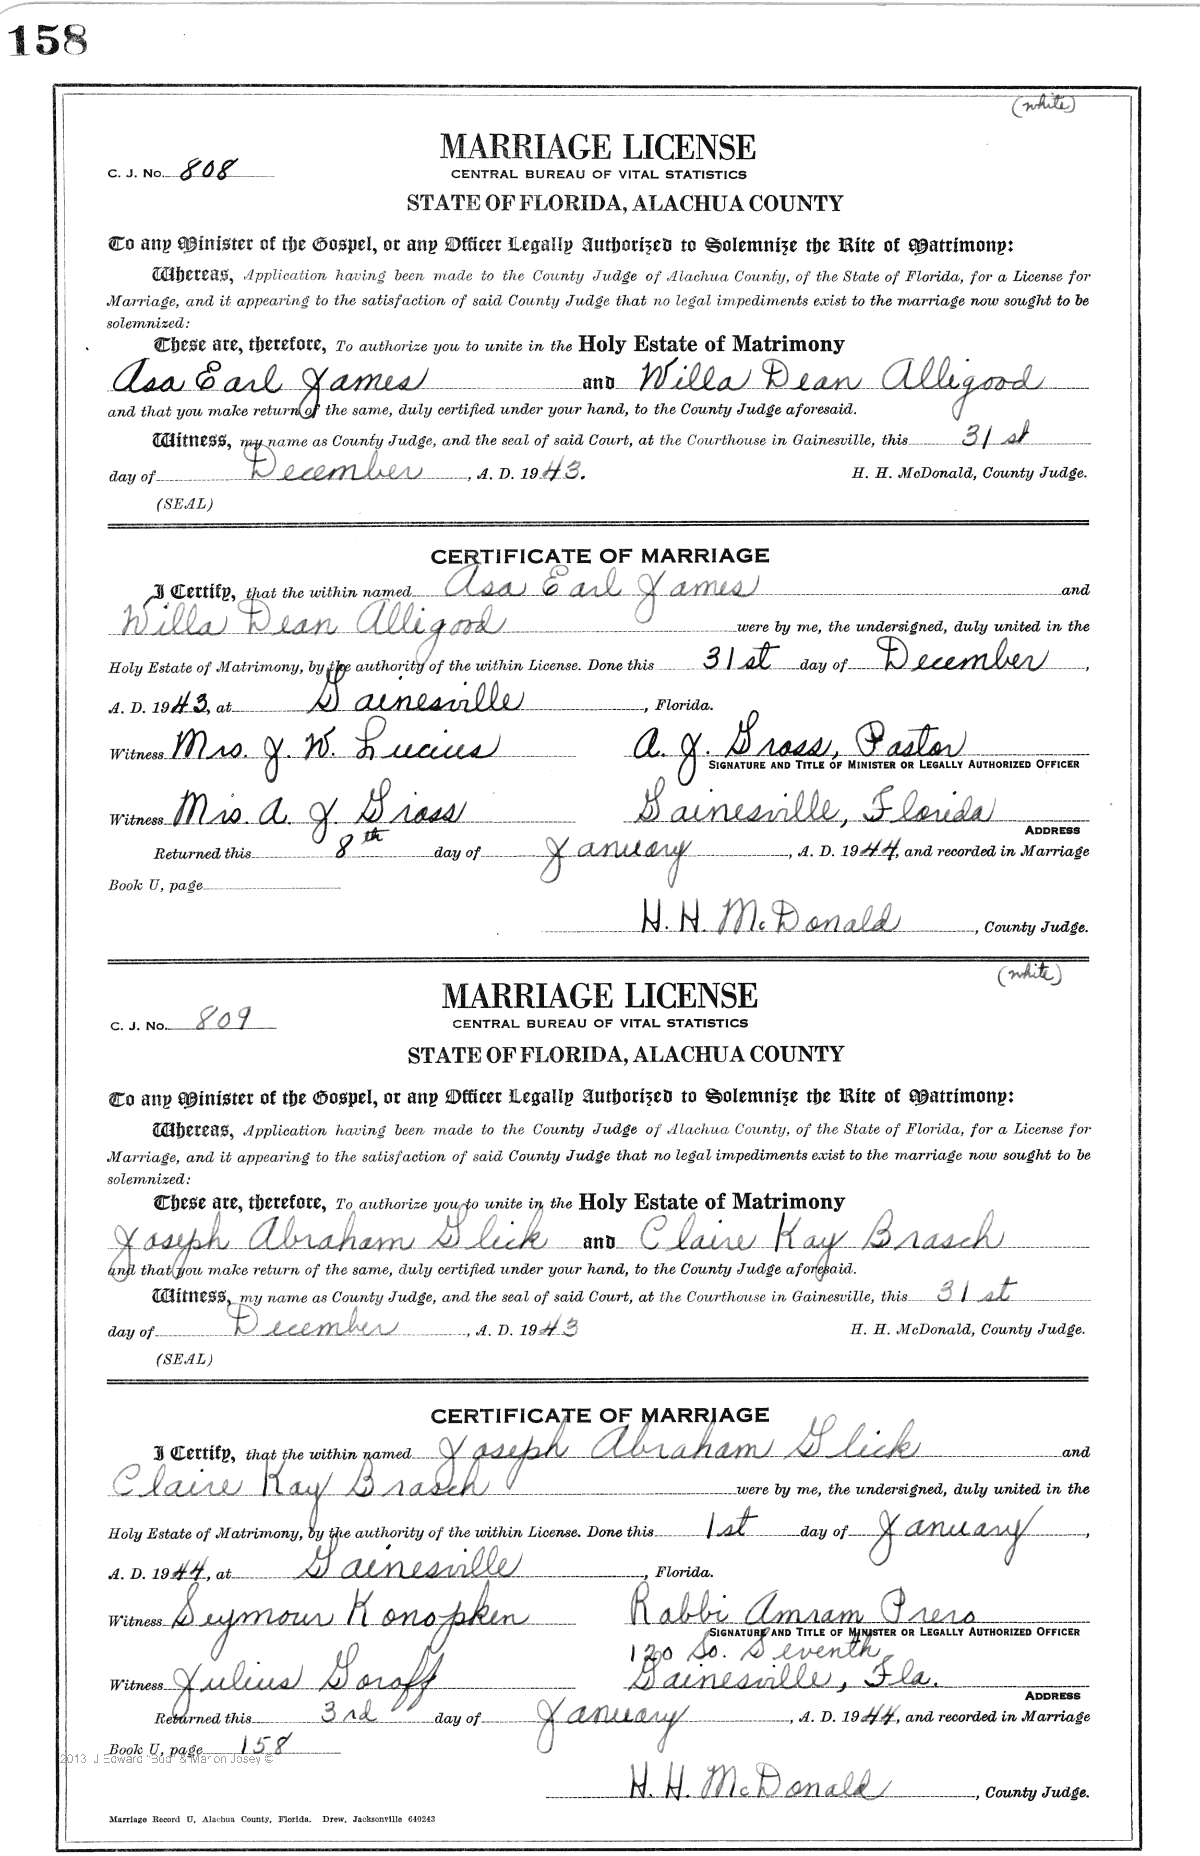 158
(white)
MARRIAGE LICENSE
C. J. No. 808
CENTRAL BUREAU OF VITAL STATISTICS
STATE OF FLORIDA, ALACHUA COUNTY
To any Minister of the Gospel, or any Officer Legally Authorized to Solemnize the Rite of Matrimony:
Whereas, Application having been made to the County Judge of Alachua County, of the State of Florida, for a License for
Marriage, and it appearing to the satisfaction of said County Judge that no legal impediments exist to the marriage now sought to be
solemnized:
These are, therefore, To authorize you to unite in the Holy Estate of Matrimony
Asa Earl James and Willa Dean Alligood
and that you make return of the same, duly certified under your hand, to the County Judge aforesaid.
Witness, my name as County Judge, and the seal of said Court, at the Courthouse in Gainesville, this 31st
day of December, A. D. 1943. H. H. McDonald, County Judge.
(SEAL)
CERTIFICATE OF MARRIAGE
I Certify, that the within named Asa Earl James and
Willa Dean Alligood were by me, the undersigned, duly united in the
Holy Estate of Matrimony, by the authority of the within License. Done this 31st day of December,
A. D. 1943, at Gainesville, Florida.
Witness Mrs. J. W. Lucius A. J. Gross, Pastor
SIGNATURE AND TITLE OF MINISTER OR LEGALLY AUTHORIZED OFFICER
Witness Mrs. A. J. Gross Gainesville, Florida
ADDRESS
Returned this 8th day of January, A. D. 1944, and recorded in Marriage
Book U, page
H. H. McDonald, County Judge.
(white)
MARRIAGE LICENSE
C. J. No. 809
CENTRAL BUREAU OF VITAL STATISTICS
STATE OF FLORIDA, ALACHUA COUNTY
To any Minister of the Gospel, or any Officer Legally Authorized to Solemnize the Rite of Matrimony:
Whereas, Application having been made to the County Judge of Alachua County, of the State of Florida, for a License for
Marriage, and it appearing to the satisfaction of said County Judge that no legal impediments exist to the marriage now sought to be
solemnized:
These are, therefore, To authorize you to unite in the Holy Estate of Matrimony
Joseph Abraham Glick and Claire Kay Brasch
and that you make return of the same, duly certified under your hand, to the County Judge aforesaid.
Witness, my name as County Judge, and the seal of said Court, at the Courthouse in Gainesville, this 31st
day of December, A. D. 1943 H. H. McDonald, County Judge.
(SEAL)
CERTIFICATE OF MARRIAGE
I Certify, that the within named Joseph Abraham Glick and
Claire Kay Brasch were by me, the undersigned, duly united in the
Holy Estate of Matrimony, by the authority of the within License. Done this 1st day of January,
A. D. 1944, at Gainesville, Florida.
Witness Seymour Konopken Rabbi Amram Prero
SIGNATURE AND TITLE OF MINISTER OR LEGALLY AUTHORIZED OFFICER
120 So. Seventh
Witness Julius Goroff Gainesville, Fla.
ADDRESS
Returned this 3rd day of January, A. D. 1944, and recorded in Marriage
Book U, page 158
2013 J Edward "Bud" & Marion Josey ©
H. H. McDonald, County Judge.
Marriage Record U, Alachua County, Florida. Drew, Jacksonville 640243